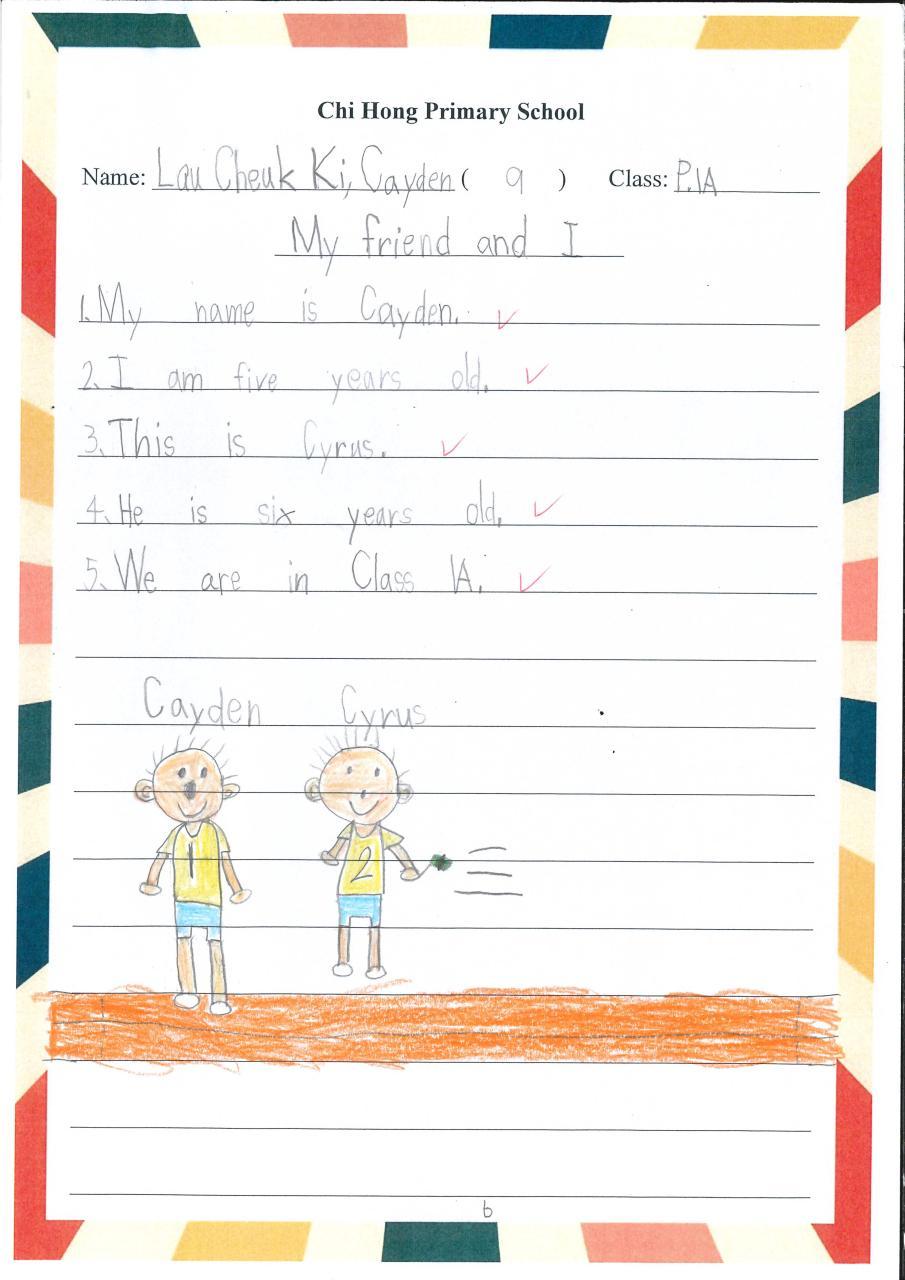 Chi Hong Primary School
Name: Lau Cheuk Ki, Cayden ( 9 ) Class: P.1A
My friend and I
1. My name is Cayden.
2. I am five years old.
3. This is Cyrus.
4. He is six years old.
5. We are in Class 1A.
Cayden Cyrus
1 2
6